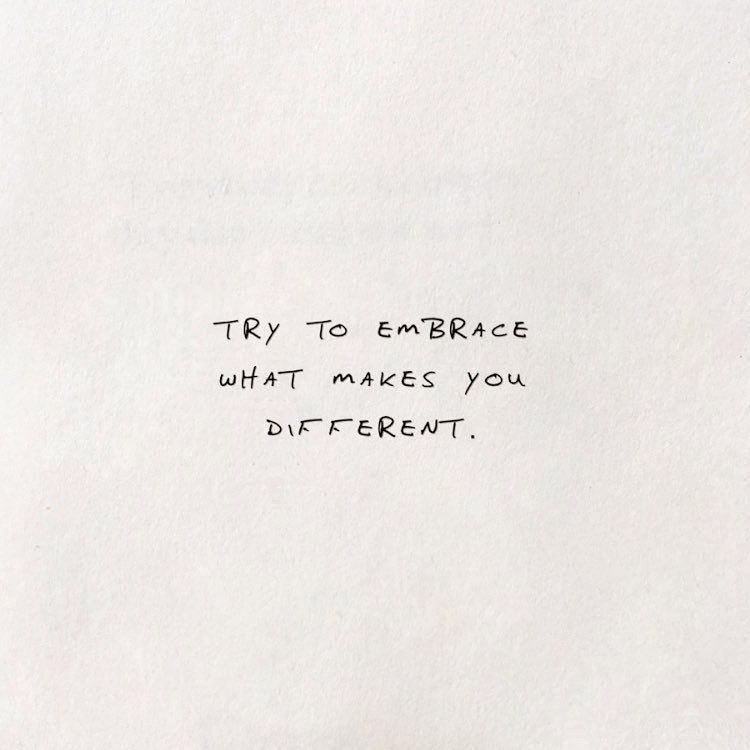 TRY TO EMBRACE
WHAT MAKES YOU
DIFFERENT.